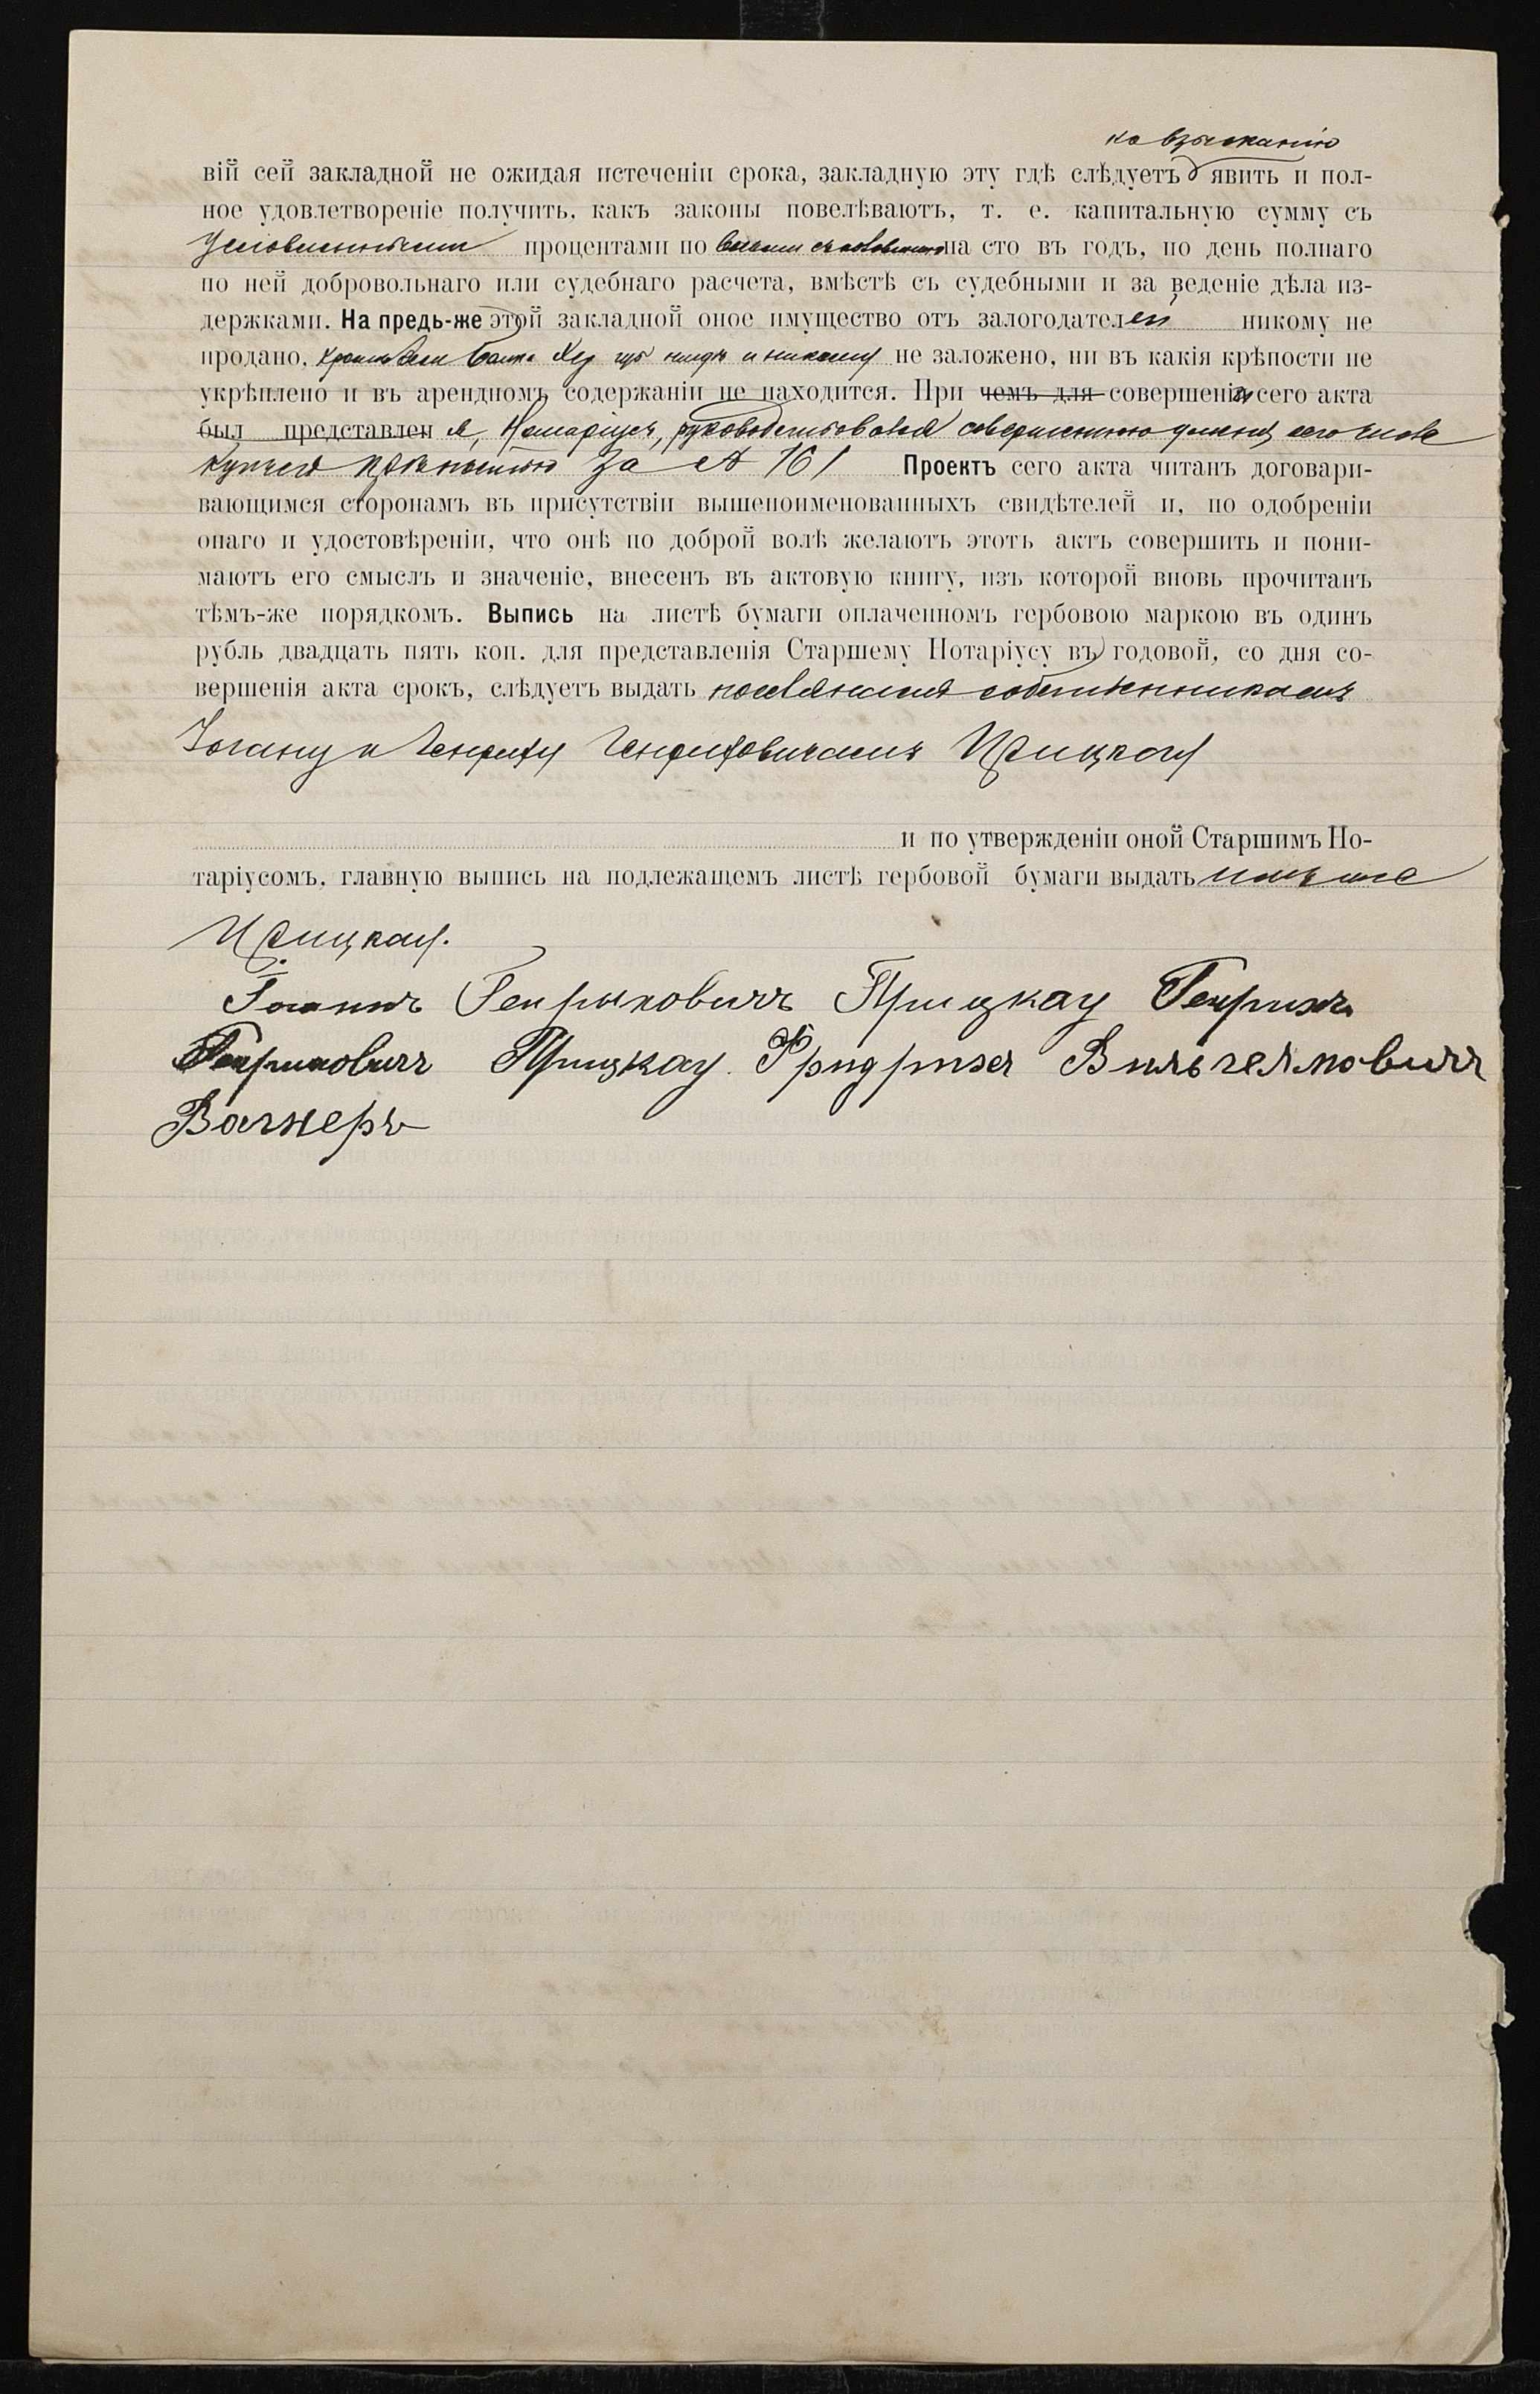 ко взысканію
вій сей закладной не ожидая истеченіи срока, закладную эту гдѣ слѣдуетъ явить и пол-
ное удовлетвореніе получить, какъ законы повелѣваютъ, т. е. капитальную сумму съ
условленными процентами по на сто въ годъ, по день полнаго
по ней добровольнаго или судебнаго расчета, вмѣстѣ съ судебными и за веденіе дѣла из-
держками. На предь-же этой закладной оное имущество отъ залогодателей никому не
продано, кромѣ Банка нигдѣ и никому не заложено, ни въ какія крѣпости не
укрѣплено и въ арендномъ содержаніи не находится. При чемъ для совершеніи сего акта
был представлен я, Нотаріусъ, руководствовался совершенною у меня сего числа
купчею крѣпостью за № 161 Проектъ сего акта читанъ договари-
вающимся сторонамъ въ присутствіи вышепоименованныхъ свидѣтелей и, по одобреніи
онаго и удостовѣреніи, что онѣ по доброй волѣ желаютъ этотъ актъ совершить и пони-
маютъ его смыслъ и значеніе, внесенъ въ актовую книгу, изъ которой вновь прочитанъ
тѣмъ-же порядкомъ. Выпись на листѣ бумаги оплаченномъ гербовою маркою въ одинъ
рубль двадцать пять коп. для представленія Старшему Нотаріусу въ годовой, со дня со-
вершенія акта срокъ, слѣдуетъ выдать поселянамъ собственникамъ
Іогану и Генриху Генриховичамъ Прицкау
и по утвержденіи оной Старшимъ Но-
таріусомъ, главную выпись на подлежащемъ листѣ гербовой бумаги выдать имъ же
Прицкау.
Іоганнъ Генрыковичъ Прицкау Генрихъ
Генриковичъ Прицкау. Фридрихъ Вильгелмовичъ
Вагнеръ